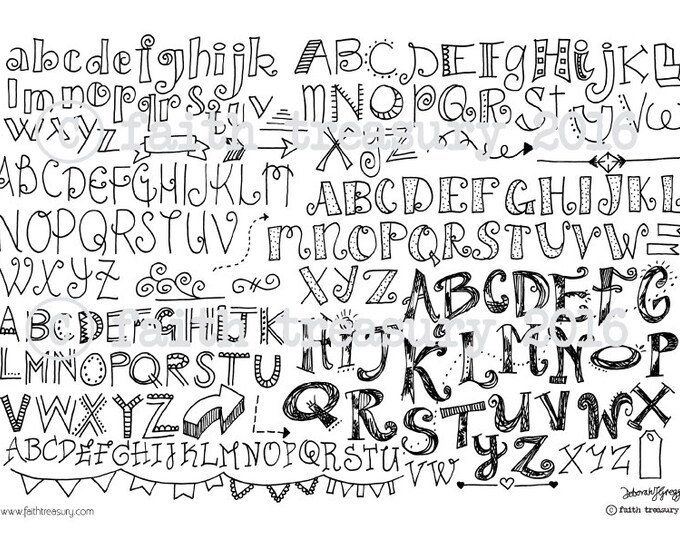 abcdefghijk
lmnopqrstuv
wxyz
ABCDEFGHIJKL
MNOPQRSTUVW
Xyz
© faith treasury 2016
ABCDEFGHIJKLM
NOPQRSTUV
WXYZ
ABCDEFGHIJKL
MNOPQRSTUVW
XYZ
© faith treasury 2016
ABCDEFGHIJK
LMNOPQRSTU
VWXYZ
ABCDEFG
HIJKLMNOP
QRSTUVWX
YZ
ABCDEFGHIJKLMNOPQRSTU
VW
XYZ
www.faithtreasury.com
© faith treasury